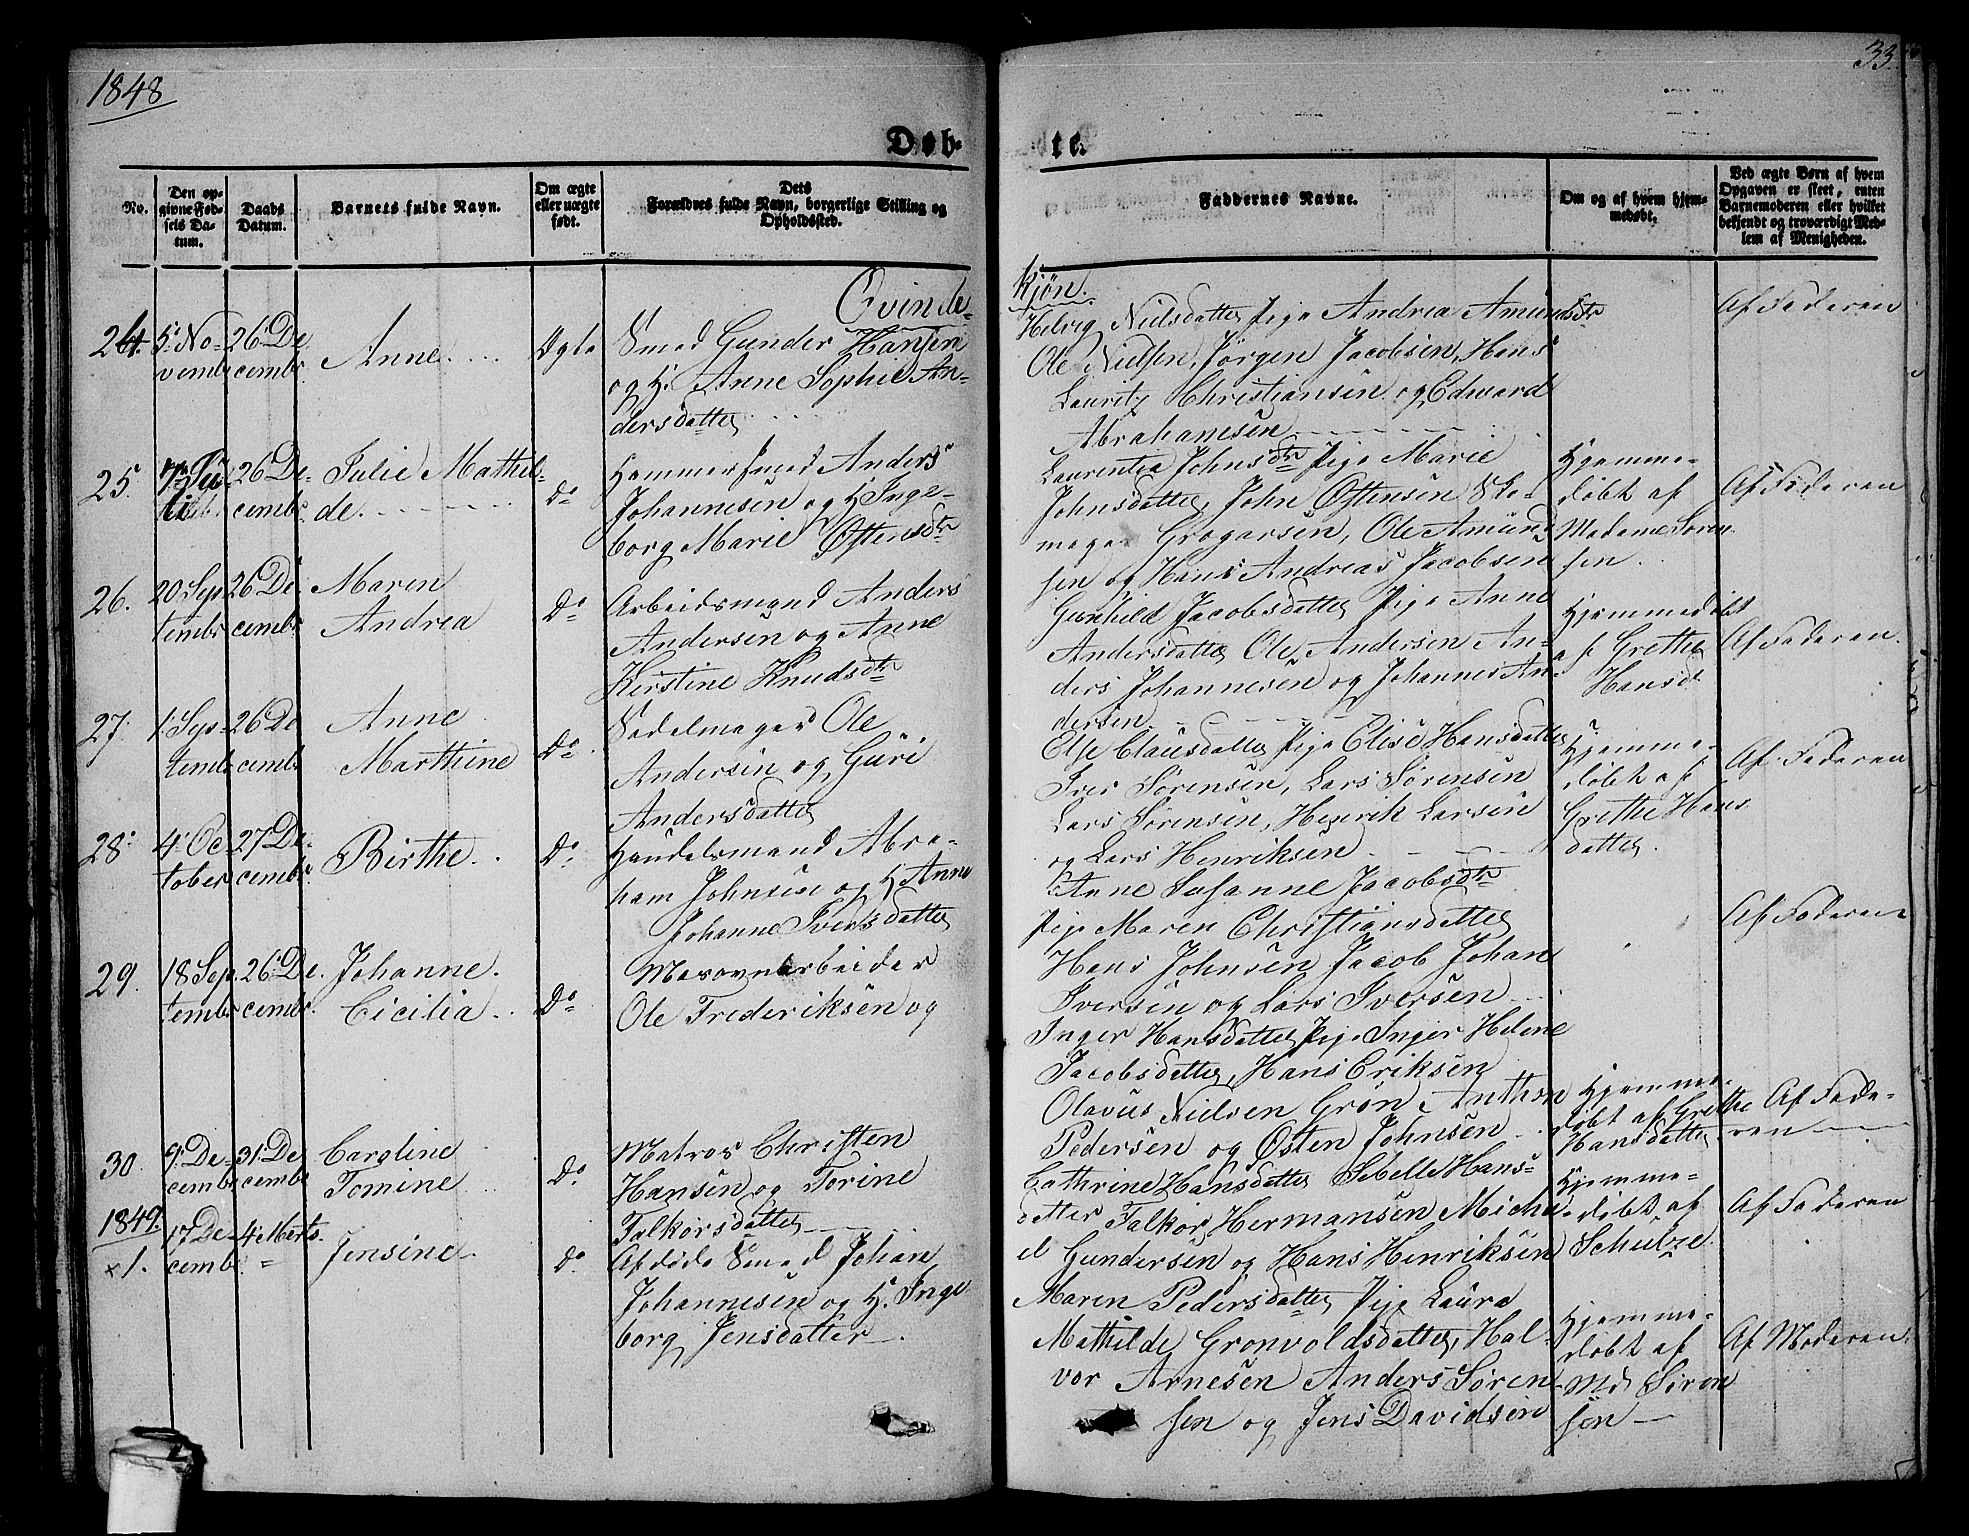 1848
33
Døb-
te.
No.
Den op-
givne Fød-
sels Da-
tum.
Daabs
Datum.
Barnets fulde Navn.
Om ægte
eller uægte
født.
Dets
Forældres fulde Navn, borgerlige Stilling og
Opholdssted.
Faddernes Navne.
Om og af hvem hjem-
medøbt.
Ved ægte Børn af hvem
Opgaven er skeet, enten
Barnemoderen eller hvilket
bekjendt og troværdigt Med-
lem af Menigheden.
Qvinde-
Kjøn.
24. 5. No- 26 De
vembr cembr
Anne
Ægte
Smed Gunder Hansen
og H. Anne Sophie An-
dersdatter
Helvig Nielsdatter Pige Andrea Amundsdtr
Ole Nielsen, Jørgen Jacobsen, Hans
Lauritz Christiansen og Edward
Abrahamsen
Af Faderen
25. 26 De-
cembr.
Julie Mathil-
de
Do
Hammersmed Anders
Johannesen og H. Inge-
borg Marie Østensdtr
Laurentia Johnsdtr Pige Marie
Johnsdatter, John Østensen Sko-
mager Gregarsen, Ole Amund
sen og Hans Andreas Jacobsen
Hjemme-
døbt af
Madame Soren
sen.
Af Faderen
26. 20 Sep 26 De.
tembr cembr
Maren
Andrea
Do
Arbeidsmand Anders
Andersen og Anne
Kerstine Knudsdtr
Gunhild Jacobsdatter Pige Anne
Andersdatter Ole Andersen An-
ders Johannesen og Johannes An-
dersen
Hjemmedøbt
af Grethe
Hansd
Af Faderen.
27. 1. Sep- 26 De
tembr cembr
Anne
Marthine
Do.
Sadelmager Ole
Andersen og Guri
Andersdatter
Else Clausdatter Pige Elise Hansdatter
Iver Sørensen, Lars Sørensen
Lars Sørensen, Henrik Larsen
og Lars Henriksen
Hjemme-
døbt af
Grethe Hans
datter.
Af Faderen
28. 4. Oc- 27 De-
tober cembr.
Birthe
Do.
Handelsmand Abra-
ham Johnsen og H. Anne
Johanne Iversdatter
Anne Susanne Jacobsdtr
Pige Maren Christiansdatter
Hans Johnsen Jacob Johan
Iversen og Lars Iversen
Af Faderen
29. 18 Sep. 26 De.
tembr cembr.
Johanne.
Cicilia.
Do
Masovnarbeider
Ole Frederiksen og
Inger Hansdatter Pige Inger Helene
Jacobsdatter, Hans Eriksen
Olavus Nielsen Grøn Anthon
Pedersen og Østen Johnsen
Hjemme-
døbt af Grethe
Hansdatter
Af Fade-
ren
30. 9. De- 31. De
cembr cembr
Caroline
Tomine
Do.
Matros Christen
Hansen og Torine
Falkorsdatter
Cathrine Hansdatter Sebelle Hans-
datter Falkor Hermansen Micha-
el Gundersen og Hans Henriksen
Hjemme-
døbt af
Schulze.
Af Faderen
1849.
×1. 17 De- 4. Merts.
cembr "
Jensine
Do
Afdøde Smed Johan
Johannesen og H. Inge
borg Jensdatter.
Maren Pedersdatter Pige Laura
Mathilde Gronvoldsdatter, Hal-
vor Arnesen Anders Søren-
sen og Jens Davidsen
Hjemme-
døbt af
Md Søren
sen
Af Moderen.